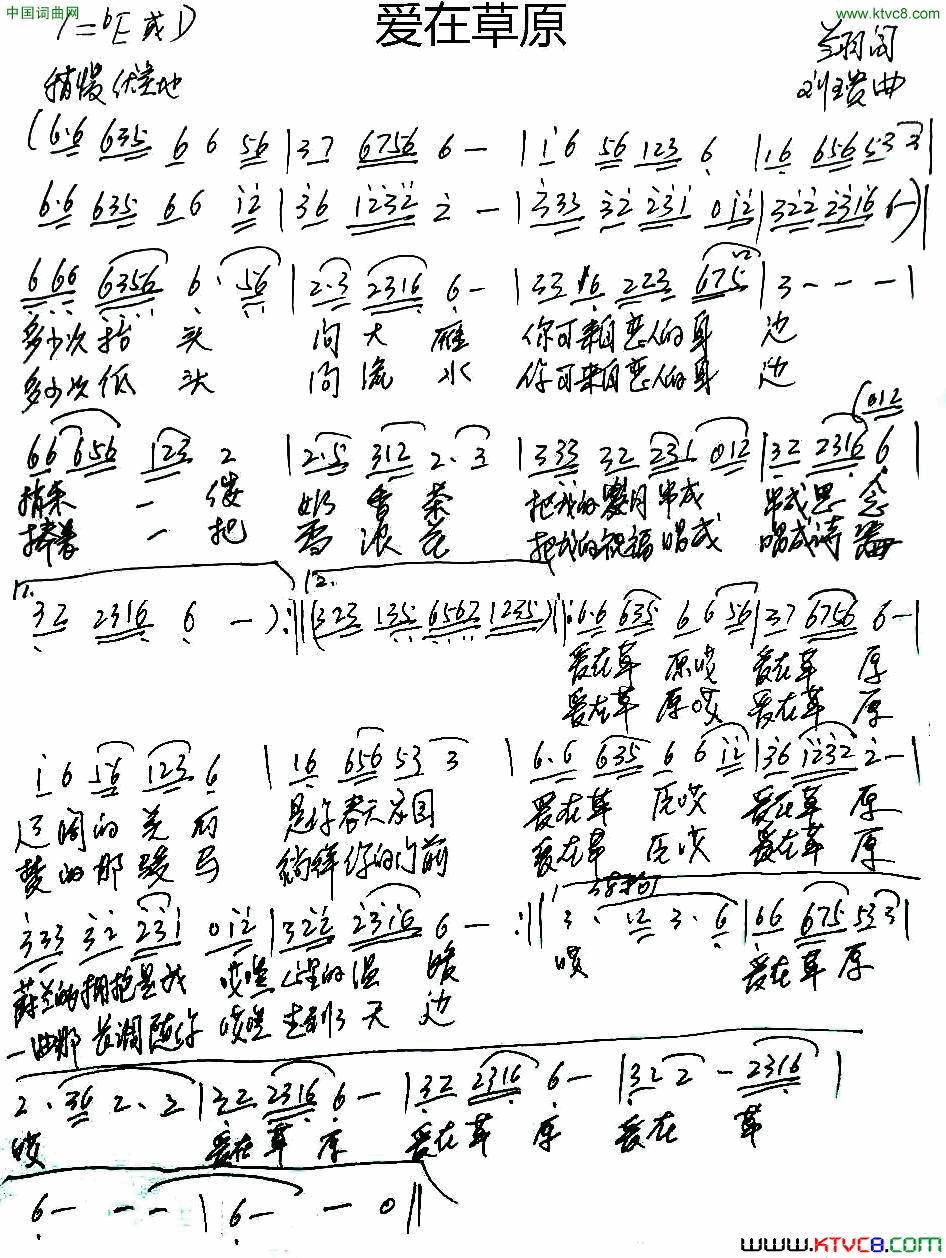 中国词曲网
www.ktvc8.com
爱在草原
1=bE或D
稍慢 优美地
曲
(6·6 635 6 6 56 | 37 6756 6 - | i 6 56 123 6 | 16 656 53 3 |
6·6 635 66 12 | 36 1232 2 - | 333 32 231 012 | 322 2316 6 - ) |
6 66 6356 6 · 56 | 2·3 2316 6 - | 33 16 223 675 | 3 - - - |
多少次抬 头 问大 雁 你可来自恋人的身 边
多少次低 头 问流 水 你可来自恋人的身 边
(012
66 656 123 2 | 2·5 312 2·3 | 333 32 231 012 | 32 2316 6 |
捎来 一 缕 奶 香 茶 把我的岁月串成 串成思 念
捧着 一 把 雪 浪 花 把我的祝福唱成 唱成诗篇
1. 2.
32 2316 6 - ) :|| (323 135 6562 1235) ||: 6·6 635 6 6 56 | 37 6756 6 - |
爱在草 原哎 爱在草 原
爱在草 原哎 爱在草 原
i 6 56 123 6 | 16 656 53 3 | 6·6 635 6 6 12 | 36 1232 2 - |
辽阔的 是你春天花园 爱在草 原哎 爱在草 原
梦的那骏马 徜徉你的门前 爱在草 原哎 爱在草 原
333 32 231 012 | 322 2316 6 - :|| 3 · 12 3 · 6 | 66 675 53 3 |
的拥抱是我 哎嘿 心里的温 暖 哎 爱在草 原
一曲那长调随你 哎嘿 走到了天 边
2 · 36 2 · 2 | 32 2316 6 - | 32 2316 6 - | 32 2 - 2316 |
哎 爱在草 原 爱在草 原 爱在 草
6 - - - | 6 - - 0 ||
www.KTVC8.com